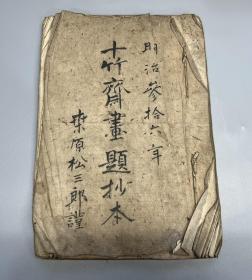 明治參拾六年
十竹齋畫題抄本
桑原松三郎謹